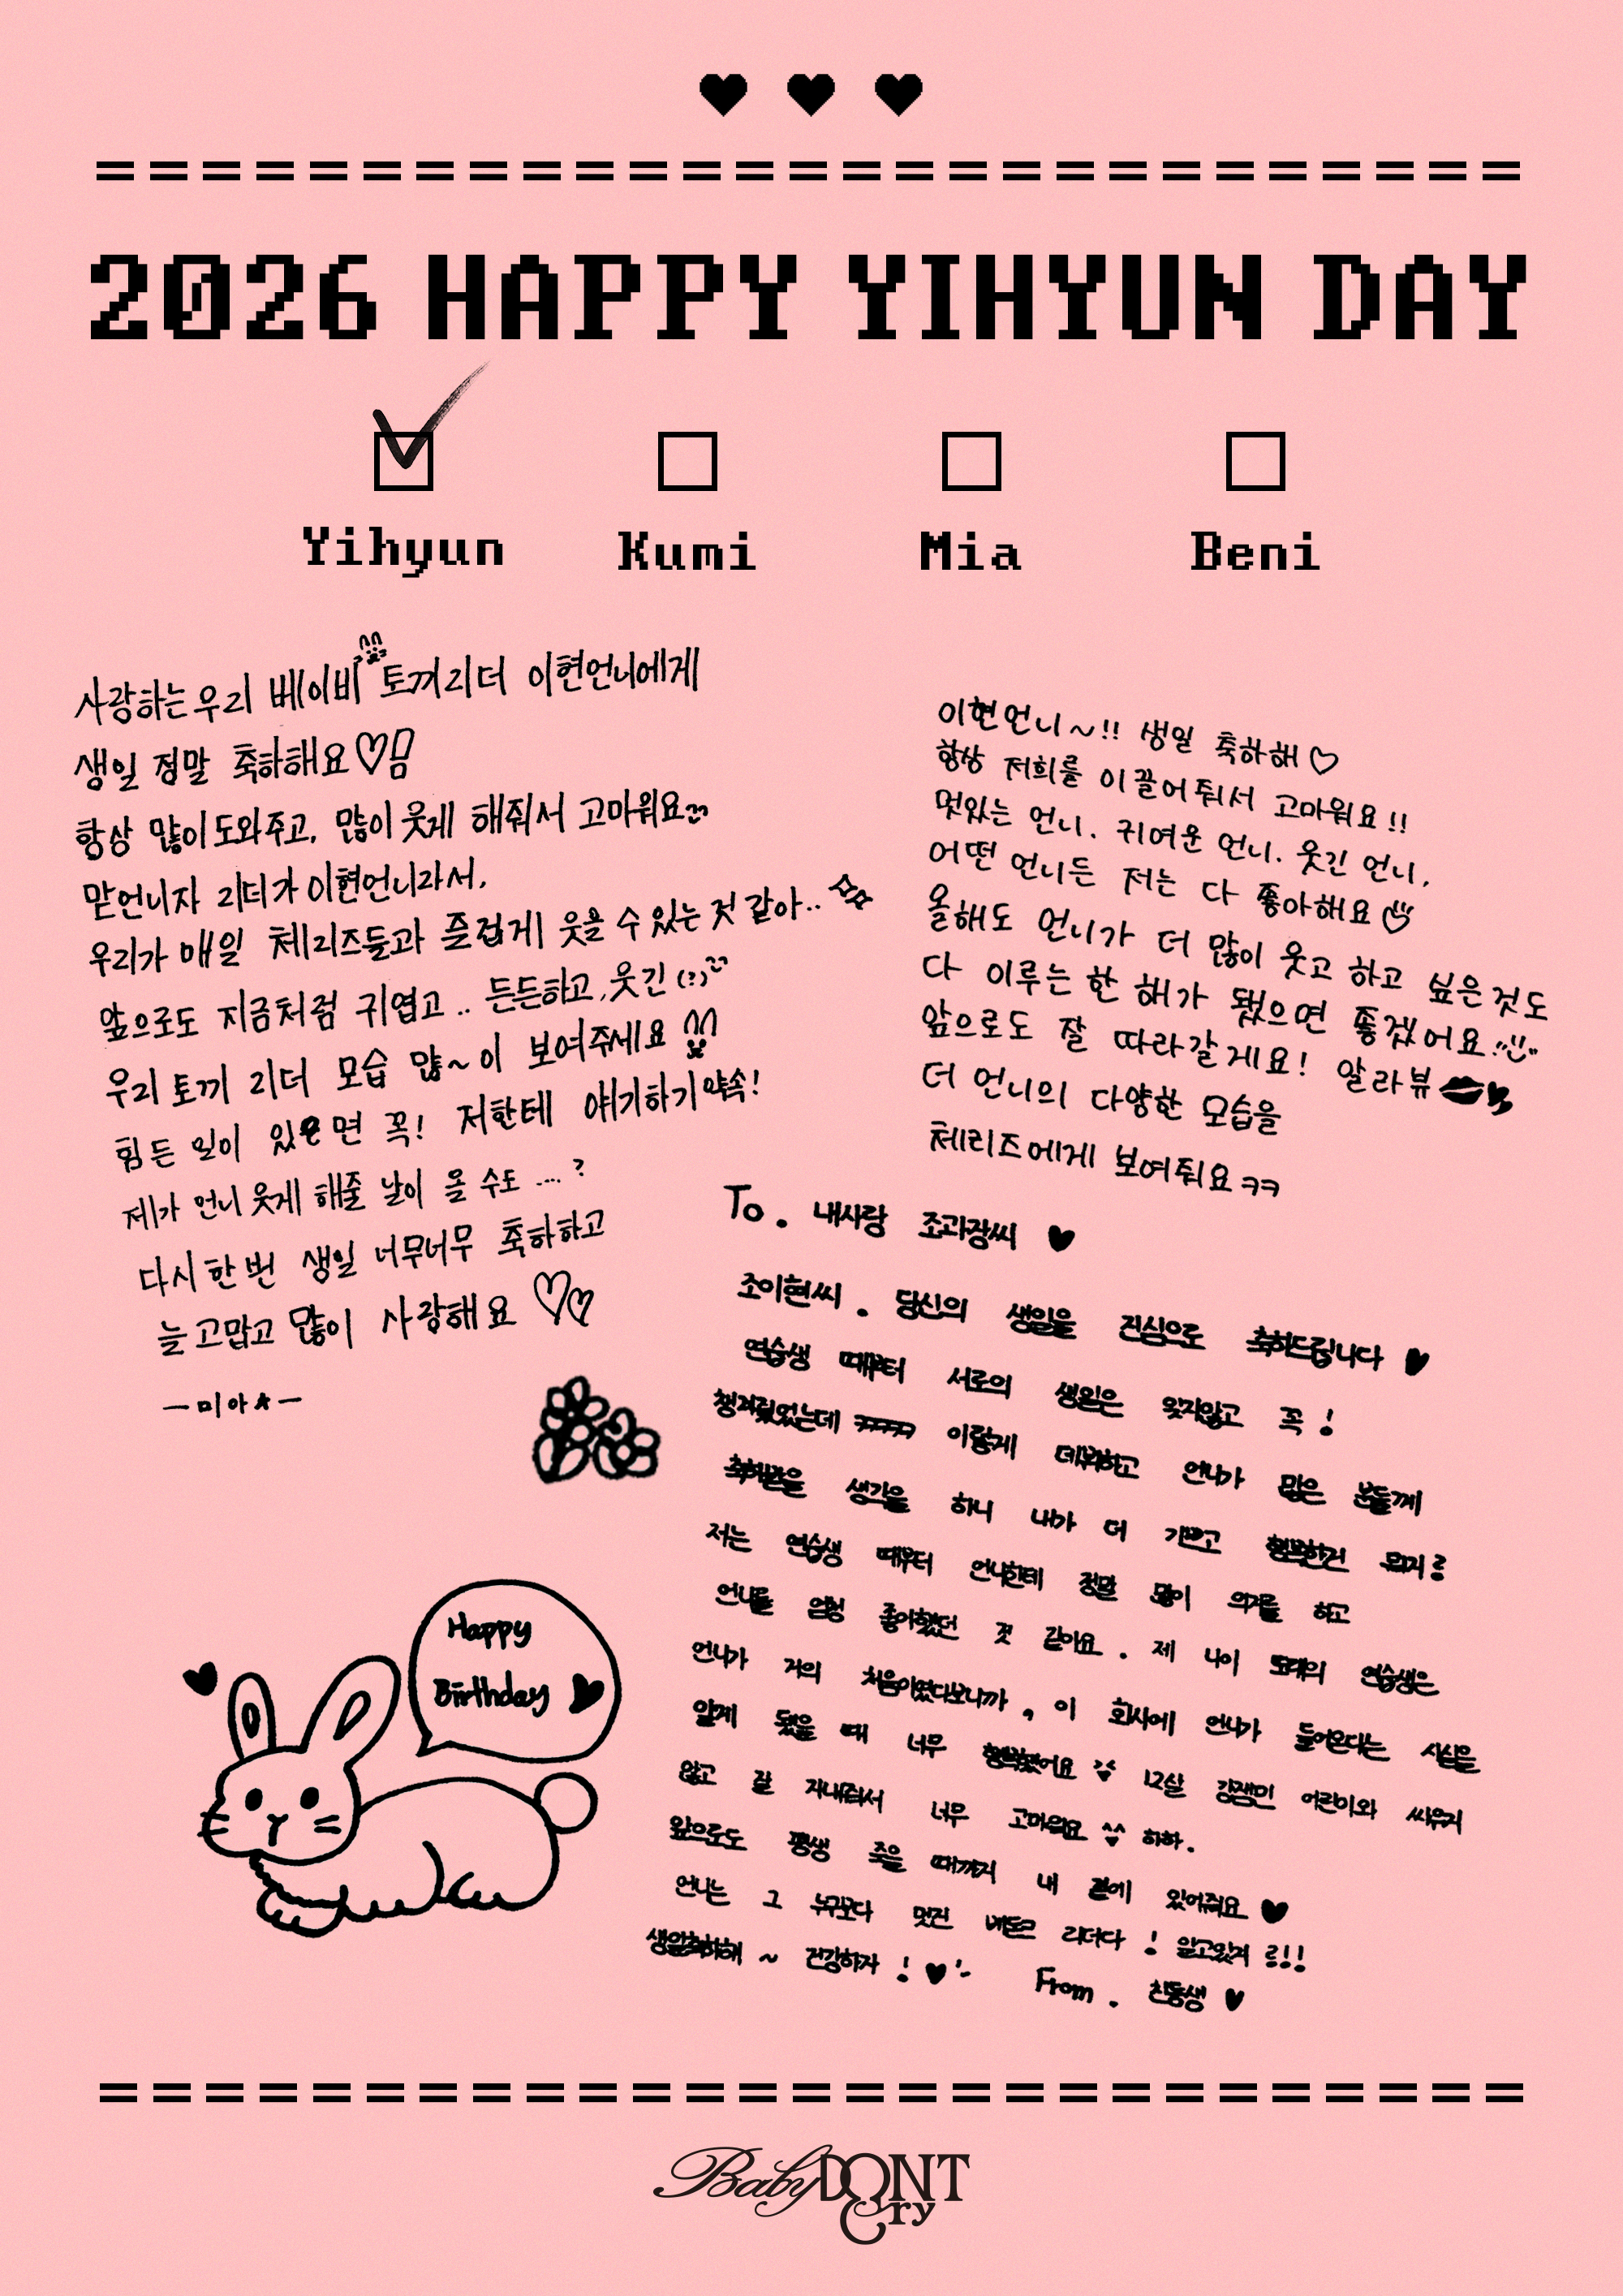 2026 HAPPY YIHYUN DAY
Yihyun Kumi Mia Beni
사랑하는 우리 베이비 토끼리더 이현언니에게
생일 정말 축하해요♡
항상 많이 도와주고, 많이 웃게 해줘서 고마워요
맏언니자 리더가 이현언니라서,
우리가 매일 체리즈들과 즐겁게 웃을 수 있는 것 같아..
앞으로도 지금처럼 귀엽고.. 든든하고, 웃긴(?)
우리 토끼 리더 모습 많~이 보여주세요
힘든 일이 있으면 꼭! 저한테 얘기하기 약속!
제가 언니 웃게 해줄 날이 올 수도 ....?
다시 한 번 생일 너무너무 축하하고
늘 고맙고 많이 사랑해요 ♡♡
ー미아★ー
이현언니~!! 생일 축하해♡
항상 저희를 이끌어줘서 고마워요!!
멋있는 언니. 귀여운 언니. 웃긴 언니.
어떤 언니든 저는 다 좋아해요
올해도 언니가 더 많이 웃고 하고 싶은것도
다 이루는 한 해가 됐으면 좋겠어요
앞으로도 잘 따라갈게요! 알라뷰
더 언니의 다양한 모습을
체리즈에게 보여줘요ㅋㅋ
To. 내사랑 조과장씨 ♥
조이현씨. 당신의 생일을 진심으로 축하드립니다 ♥
연습생 때부터 서로의 생일은 잊지않고 꼭!
챙겨줬었는데 ㅋㅋㅋㅋㅋ 이렇게 데뷔하고 언니가 많은 분들께
축하받을 생각을 하니 내가 더 기쁘고 행복한건 뭐지!
저는 연습생 때부터 언니한테 정말 많이 의지를 하고
언니를 엄청 좋아했던 것 같아요. 제 나이 또래의 연습생은
언니가 거의 처음이였다보니까, 이 회사에 언니가 들어온다는 사실을
알게 됐을 때 너무 행복했어요 12살 강쟁미 어린이와 싸우지
않고 잘 지내줘서 너무 고마워요 ^^ 하하.
앞으로도 평생 죽을 때까지 내 곁에 있어줘요 ♥
언니는 그 누구보다 멋진 베돈크 리더다! 알고있지!!!
생일축하해~ 건강하자! ♥
From. 친동생 ♥
Happy
Birthday ♥
Baby DONT
Cry